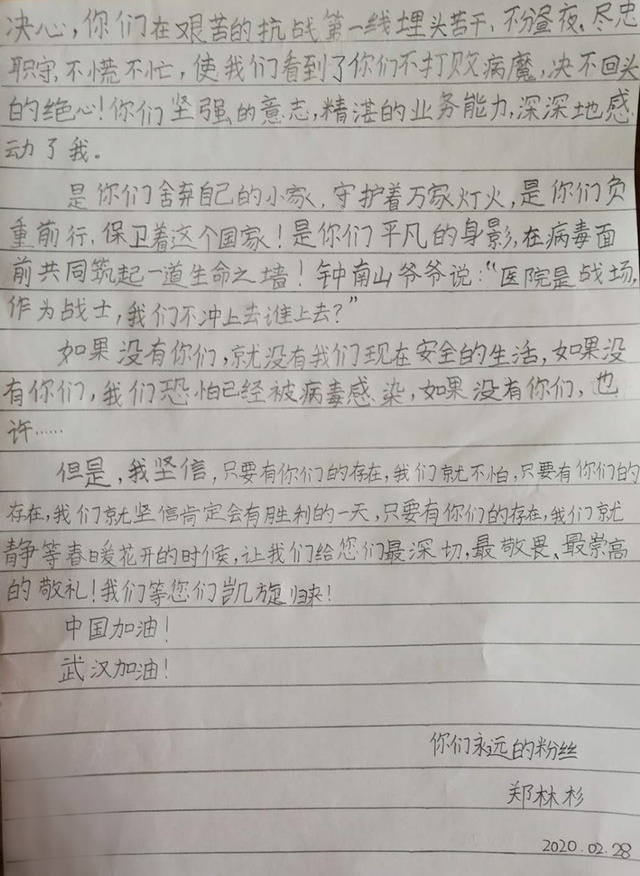 决心，你们在艰苦的抗战第一线埋头苦干、不分昼夜、尽忠
职守，不慌不忙，使我们看到了你们不打败病魔，决不回头
的绝心！你们坚强的意志，精湛的业务能力，深深地感
动了我。
是你们舍弃自己的小家，守护着万家灯火，是你们负
重前行，保卫着这个国家！是你们平凡的身影，在病毒面
前共同筑起一道生命之墙！钟南山爷爷说：“医院是战场，
作为战士，我们不冲上去谁上去？”
如果没有你们，就没有我们现在安全的生活，如果没
有你们，我们恐怕已经被病毒感染，如果没有你们，也
许……
但是，我坚信，只要有你们的存在，我们就不怕，只要有你们的
存在，我们就坚信肯定会有胜利的一天，只要有你们的存在，我们就
静等春暖花开的时候，让我们给您们最深切，最敬畏、最崇高
的敬礼！我们等您们凯旋归来！
中国加油！
武汉加油！
你们永远的粉丝
郑林杉
2020.02.28